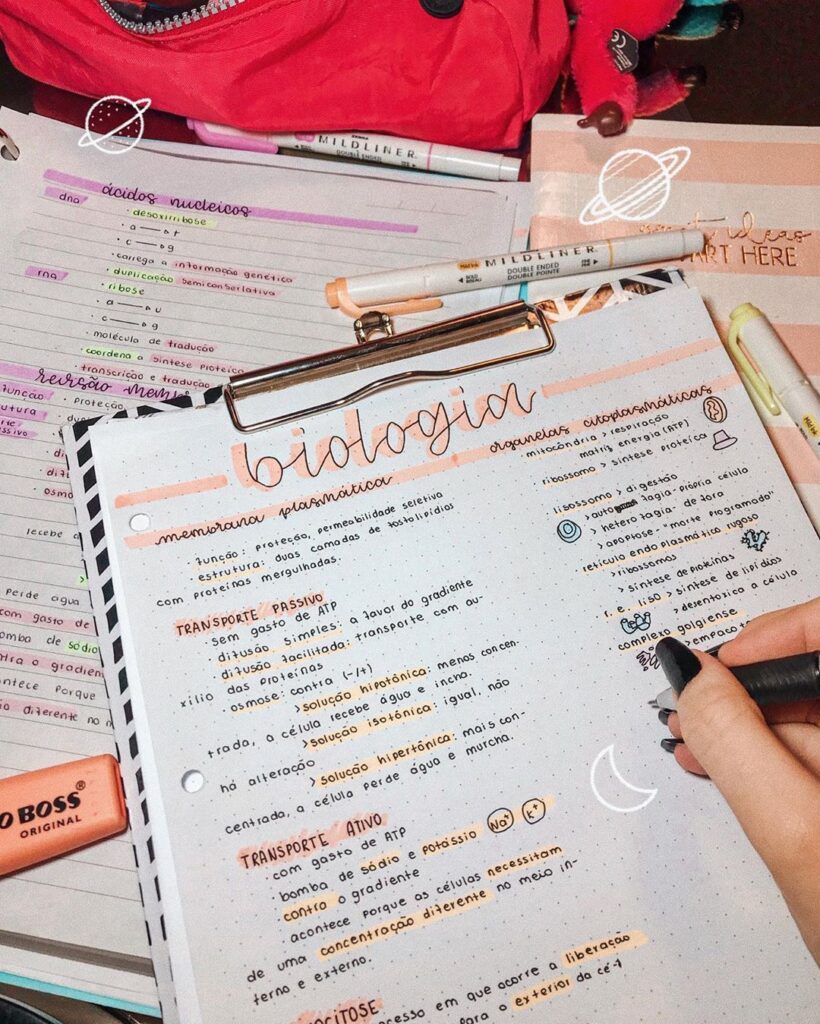 MILDLINER
DOUBLE ENDED
ácidos nucleicos
dna
• desoxirribose
• a → t
• c → g
• carrega a informação genética
• duplicação semiconserlativa
rna
• ribose
• a → u
• c → g
• molécula de tradução
• coordena a síntese proteica
• transcrição e tradução
revisão mem
função • proteção
utura
recebe
perde água
com gasto de
bomba de sódio
tra o gradien
ntece porque
diferente no
BOSS®
ORIGINAL
MILDLINER
DOUBLE ENDED
DOUBLE POINTE
ideas
START HERE
biologia
membrana plasmática
• função: proteção, permeabilidade seletiva
• estrutura: duas camadas de fosfolipídios
com proteínas mergulhadas.
TRANSPORTE PASSIVO
• sem gasto de ATP
• difusão simples: a favor do gradiente
• difusão facilitada: transporte com au-
xílio das proteínas
• osmose: contra (-/+)
> solução hipotônica: menos concen
trada, a célula recebe água e incha.
> solução isotônica: igual, não
há alteração
> solução hipertônica: mais con-
centrada, a célula perde água e murcha.
TRANSPORTE ATIVO
• com gasto de ATP
• bomba de sódio e potássio Na+ K+
contra o gradiente
• acontece porque as células necessitam
de uma concentração diferente no meio in-
terno e externo.
OCITOSE
cesso em que ocorre a liberação
para o exterior da cé-
organelas citoplasmáticas
mitocôndria > respiração
matriz energia (ATP)
ribossomo > síntese proteica
lisossomo > digestão
> autofagia: própria célula
> heterofagia: de fora
> apoptose: "morte programada"
retículo endoplasmático rugoso
> ribossomos
> síntese de proteínas
r. e. liso > síntese de lipídios
> desentoxica a célula
complexo golgiense
> empacota